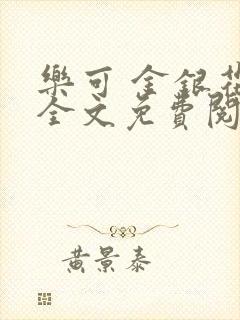 樂可 金銀花
全文免費閱
黃景泰